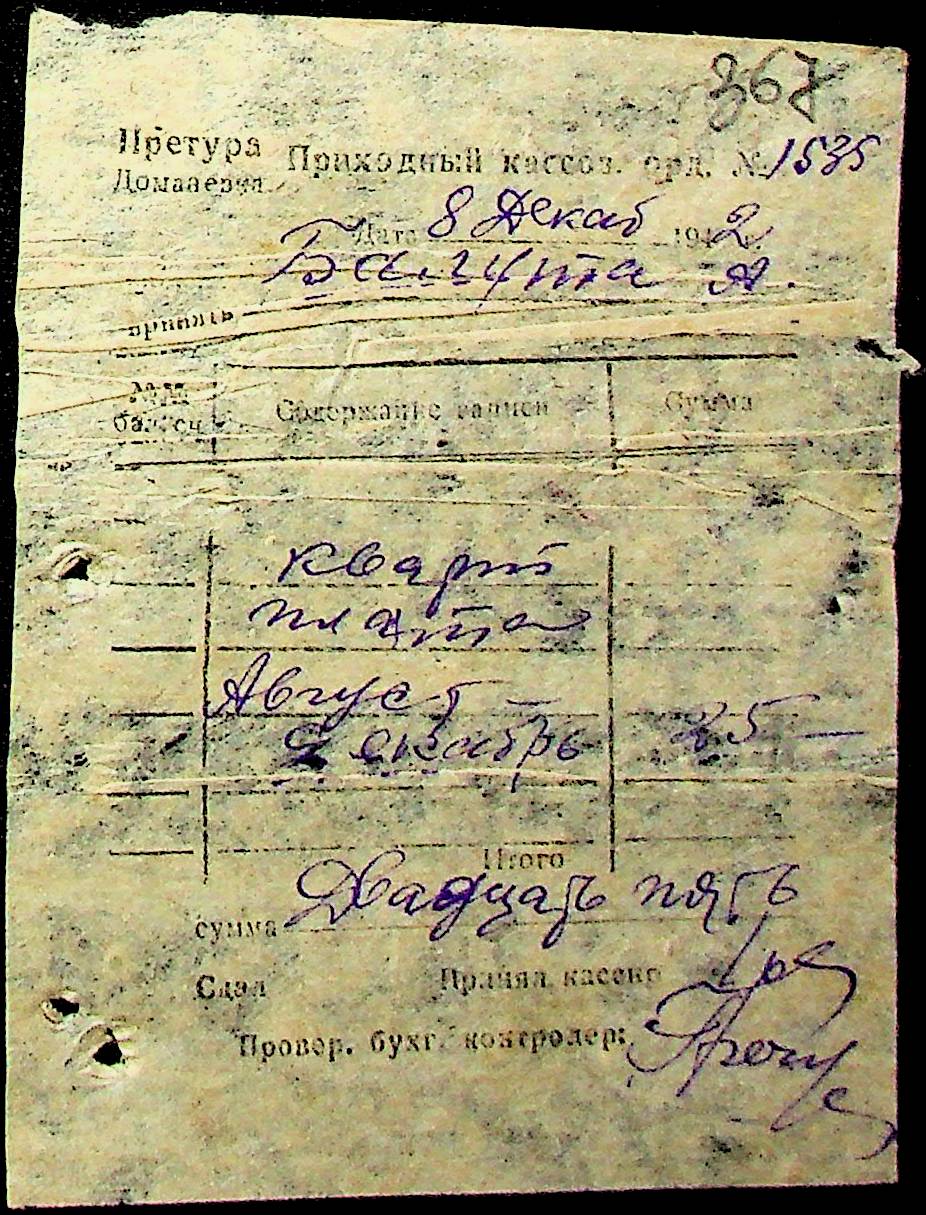 367
Претура
Домааевка
Приходный кассов. орд. № 1535
Дата 8 Декаб 1942
Балута А.
принять
№№ Содержание записи Сумма
балсч
кварт
плата
Август –
Декабрь 25 —
Итого
сумма Двадцать пять
Сдал Принял кассир
Провер. бухг. контролер: